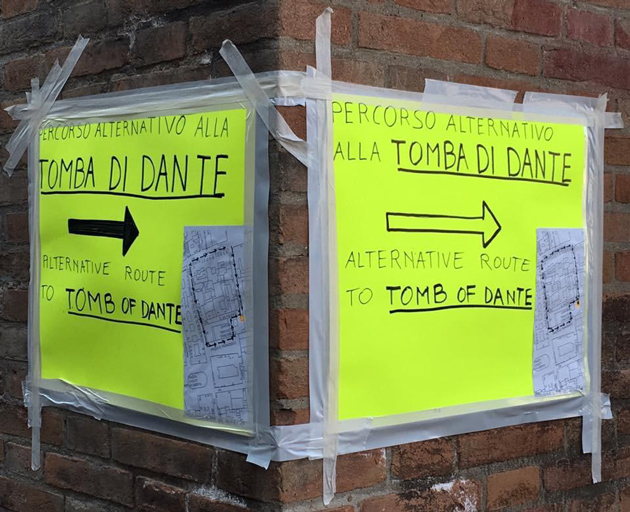 PERCORSO ALTERNATIVO ALLA
TOMBA DI DANTE
ALTERNATIVE ROUTE
TO TOMB OF DANTE
PERCORSO ALTERNATIVO
ALLA TOMBA DI DANTE
ALTERNATIVE ROUTE
TO TOMB OF DANTE